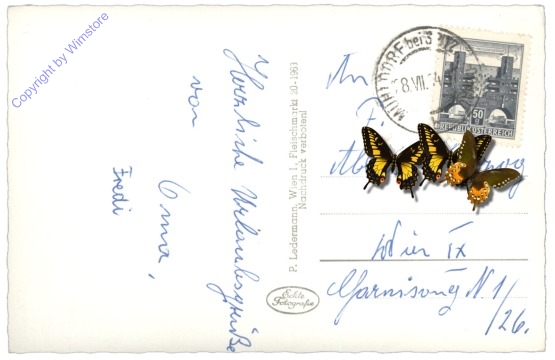 Copyright by Wimstore
Herzliche Urlaubsgrüße
von
Oma,
Fredi
P. Ledermann, Wien I., Fleischmarkt 20 - 1963
Nachdruck verboten!
Echte
Fotografie
MÜHLDORF bei
8. VII.
50
REPUBLIK ÖSTERREICH
An
Wien IX
Garnisong N. 1/
26.